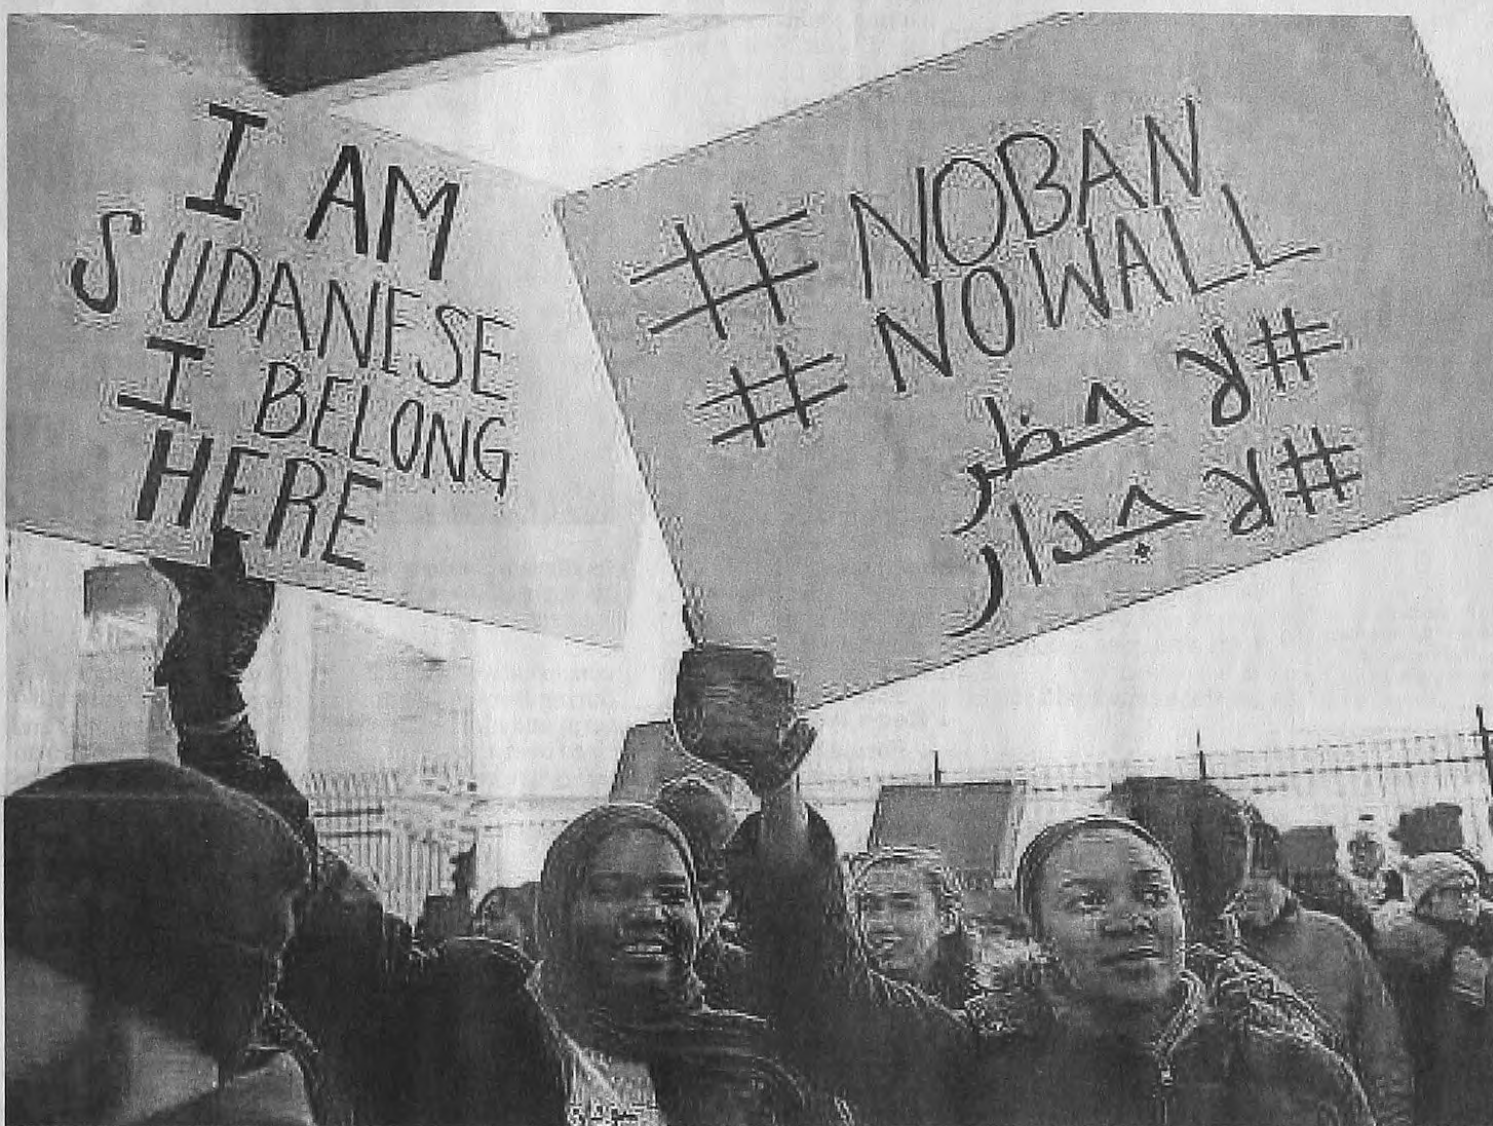 I AM
SUDANESE
I BELONG
HERE
# NOBAN
# NOWALL
#لا حظر
#لا جدار